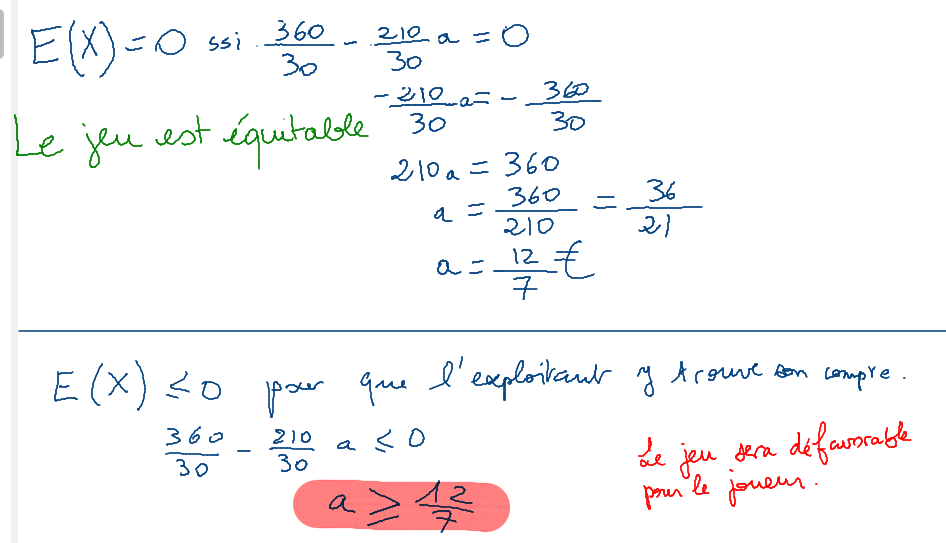 E(X) = 0 ssi 360/30 - 210/30 a = 0
-210/30 a = - 360/30
Le jeu est équitable
210a = 360
a = 360/210 = 36/21
a = 12/7 €
E(X) ≤ 0 pour que l'exploitant y trouve son compte.
360/30 - 210/30 a ≤ 0
Le jeu sera défavorable
pour le joueur.
a ≥ 12/7